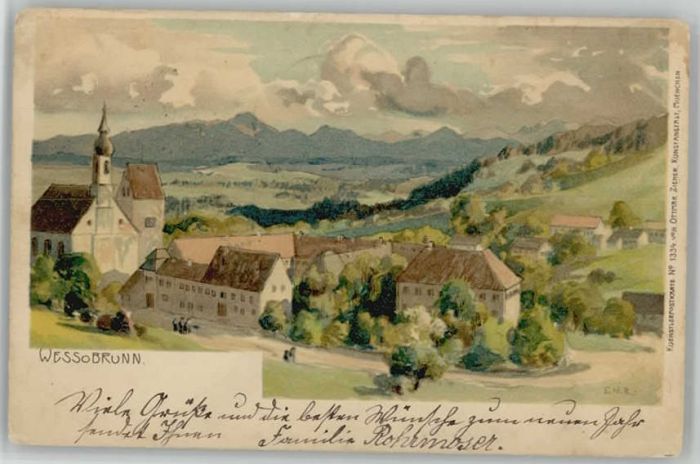 WESSOBRUNN.
KUENSTLERPOSTKARTE Nº 1334 VON OTTMAR ZIEHER, KUNSTANSTALT, MUENCHEN
Viele Grüße und die besten Wünsche zum neuen Jahr
sendet Ihnen Familie Rohrmoser.